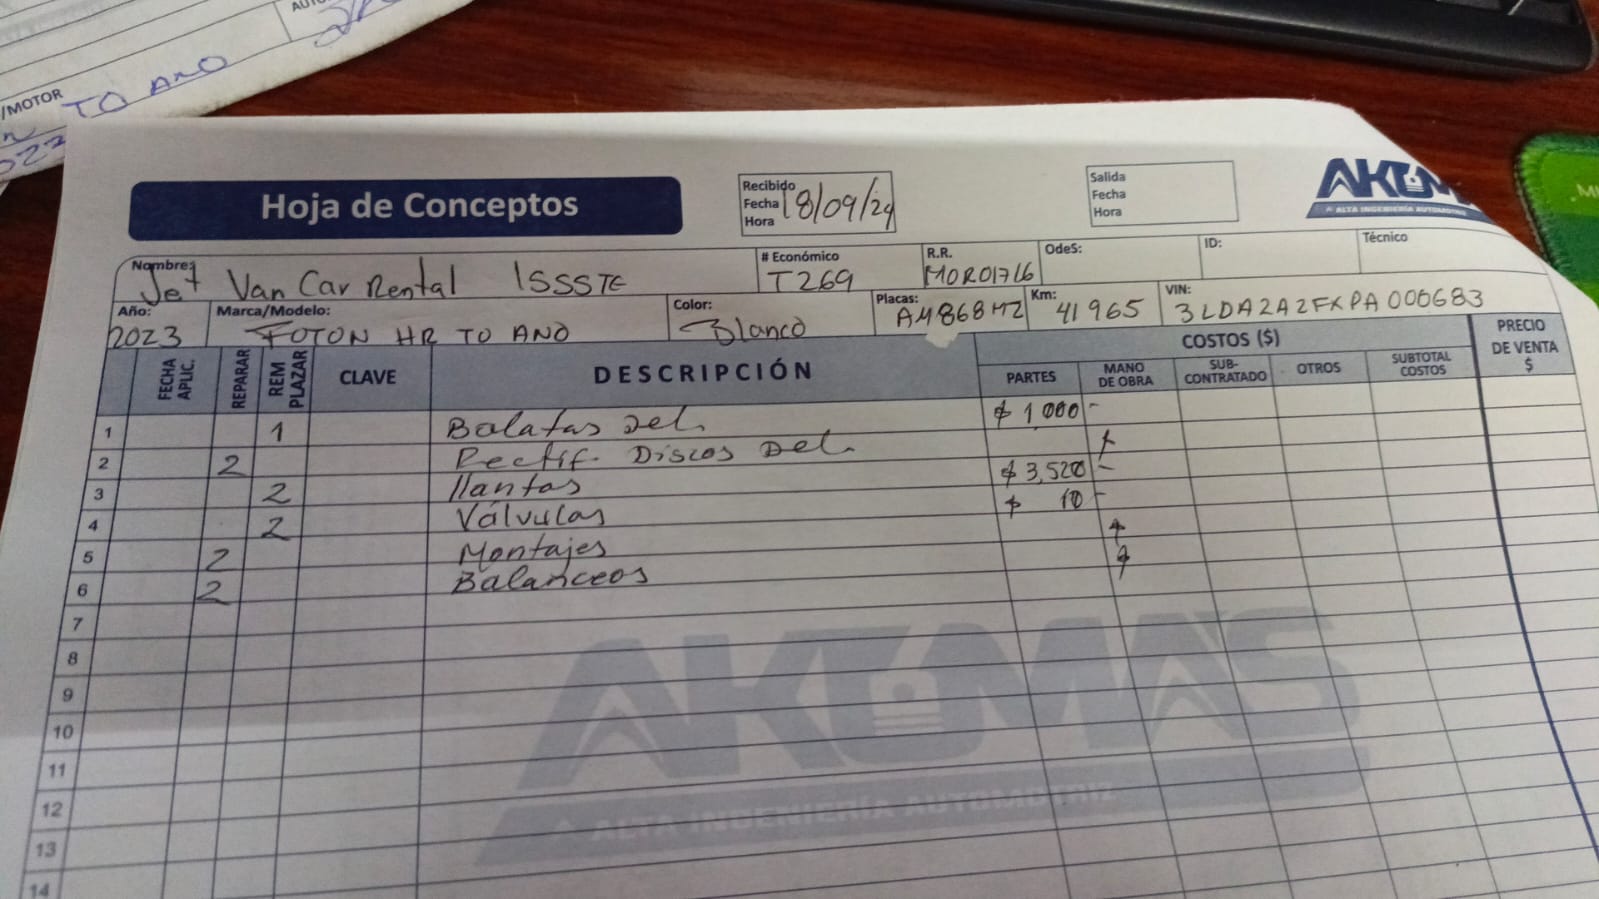 AUTO
/MOTOR
TO ANO
Hoja de Conceptos
Recibido
Fecha 18/09/24
Hora
Salida
Fecha
Hora
ALTA INGENIERÍA AUTOMOTRIZ
Nombre: Jet Van Car Rental ISSSTE
# Económico T269
R.R. MOR01716
OdeS:
ID:
Técnico
Año: 2023
Marca/Modelo: FOTON HR TO ANO
Color: Blanco
Placas: AM868M2
Km: 41 965
VIN: 3LDA2A2FXPA000683
FECHA APLIC. REPARAR REM PLAZAR CLAVE DESCRIPCIÓN COSTOS ($) PRECIO DE VENTA $
PARTES MANO DE OBRA SUB-CONTRATADO OTROS SUBTOTAL COSTOS
1 1 Balatas Del. $ 1,000 -
2 2 Rectif. Discos Del.
3 2 llantas $ 3,520 -
4 2 Válvulas $ 10 -
5 2 Montajes
6 2 Balanceos
7
8
9
10
11
12
13
14
AKTMAS
ALTA INGENIERÍA AUTOMOTRIZ